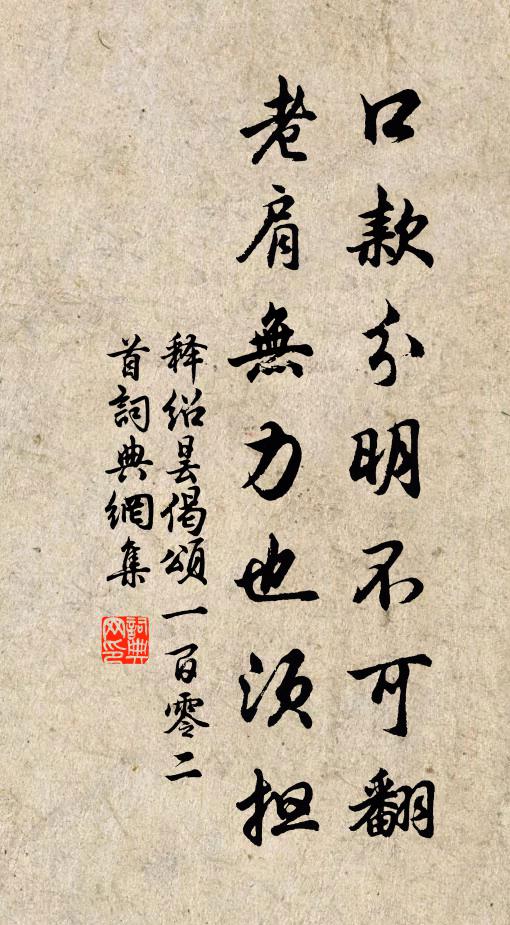 口款分明不可翻
老肩無力也須担
释绍昙偈頌一百零二
首詞典網集
詞典
网印